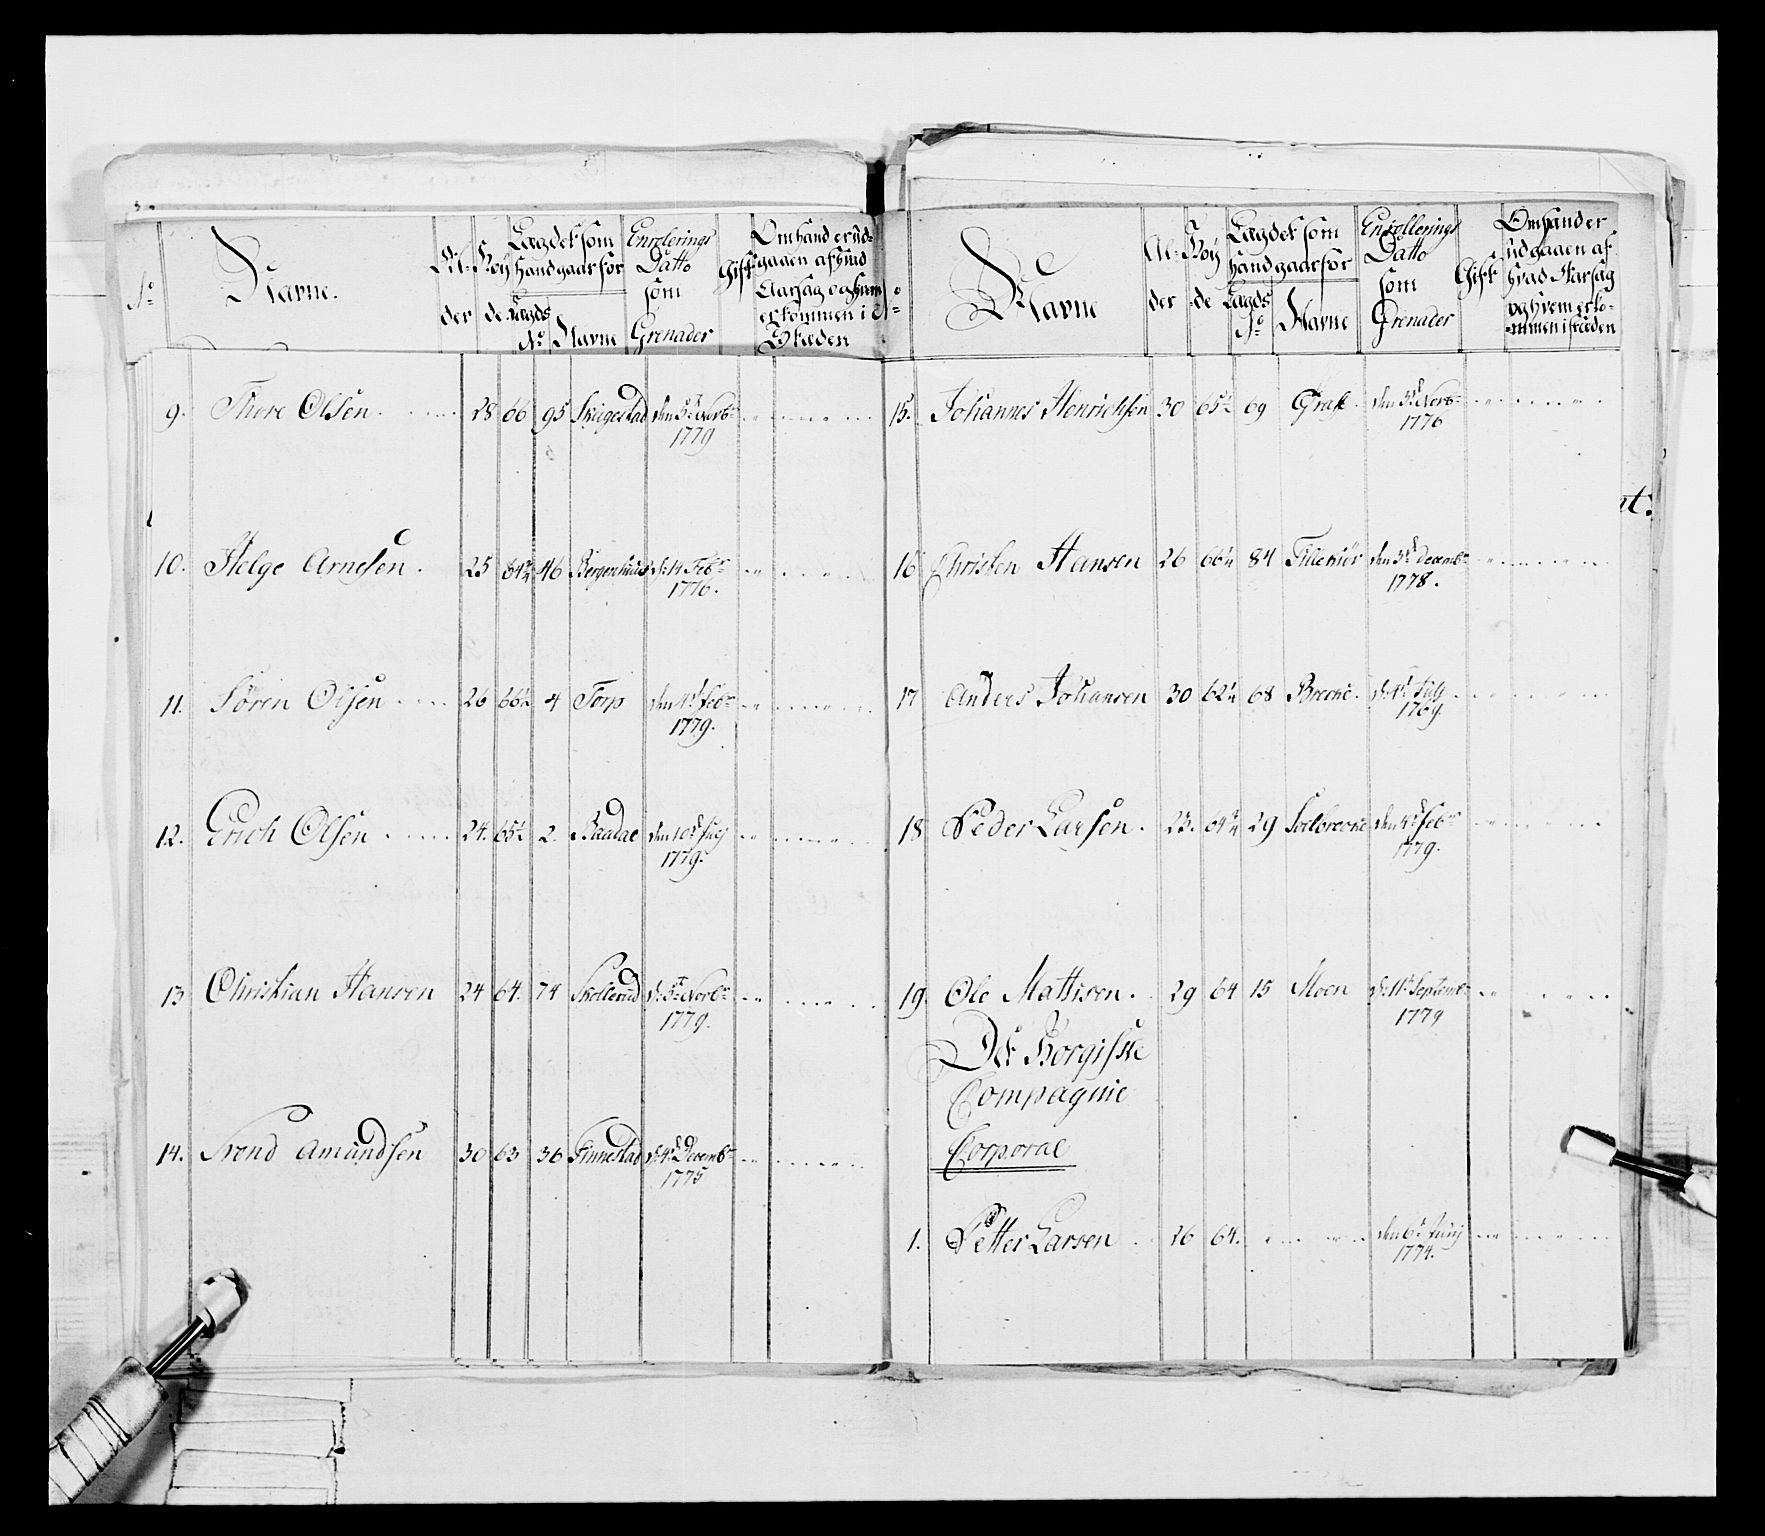 No
Navne.
Al-
der
Höy
de
Lægdet som
hand gaar for
Lægds
No
Navne
Enrolerings
Datto
som
Grenader
Gift
Om hand er ud-
gaaen af hvad
Aarsag og hvem
er kommen i
Stæden
9. Thore Olsen 28 66 95 den 5t Novbr
1779
10. Helge Arnesen. 25 64¾ 46 Bergenhuus d: 14 Febr
1776.
11. Sören Olsen 26 66½ 4 Torp den 4t Febr
1779.
12. Erich Olsen 24. 65½ 2. Baadal den 10t July
1779.
13 Christian Hansen 24 64. 74 Skollerud d: 5t Novbr
1779.
14. Trond Amundsen 30 63 36 Finnestad d: 4t Decembr
1775
No
Navne
Al-
der
Höy
-de
Lægdet som
hand gaar for
Lægds
No
Navne
Enrollerings
Datto
som
Grenader
Gift
Om hand er
udgaaen af
hvad Aarsag
og hvem er ko-
mmen i stæden
15. Johannes Henrichsen 30 65½ 69 den 5t Novbr
1776
16 Christen Hansen 26 66¼ 84 den 3t Decembr
1778.
17 Anders Johansen 30 62¼ 68 d: 1t July
1769.
18 Peder Larsen. 23. 64¾ 29 den 4t Febr
1779.
19. Ole Mattisen. 29 64 15 Moen d: 11t Septembr
1779
Det Borgiske
Compagnie
Corporal
1. Petter Larsen 26 64. den 6t Junij
1774.